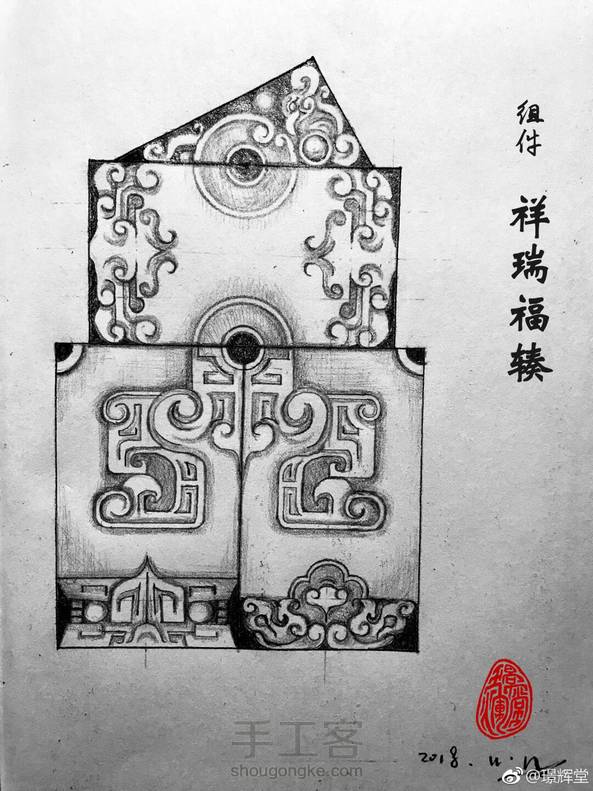 组件
祥瑞福辏
手工客
shougongke.com
2018.11.
@璟辉堂